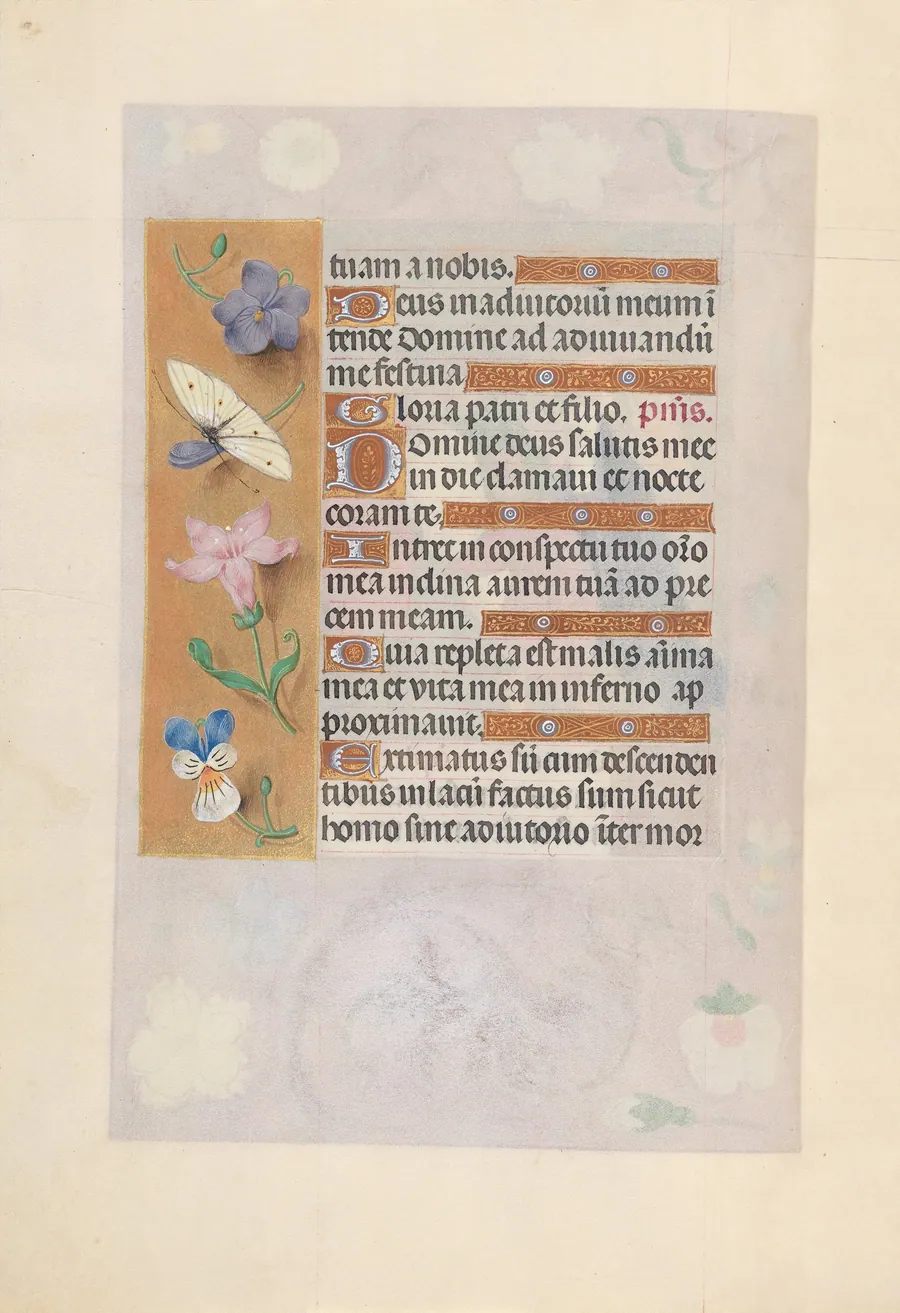 tuam a nobis.
Deus in adiutoriū meum ī
tende Domine ad adiuuandū
me festina,
Gloria patri et filio. pṁs.
Domine deus salutis mee
in die clamaui et nocte
coram te,
Intret in conspectu tuo oro
mea inclina aurem tuā ad pre
cem meam.
Quia repleta est malis aīma
mea et vita mea in inferno ap
proximauit,
Extimatus sū cum descenden
tibus in lacū factus sum sicut
homo sine adiutorio īter mor